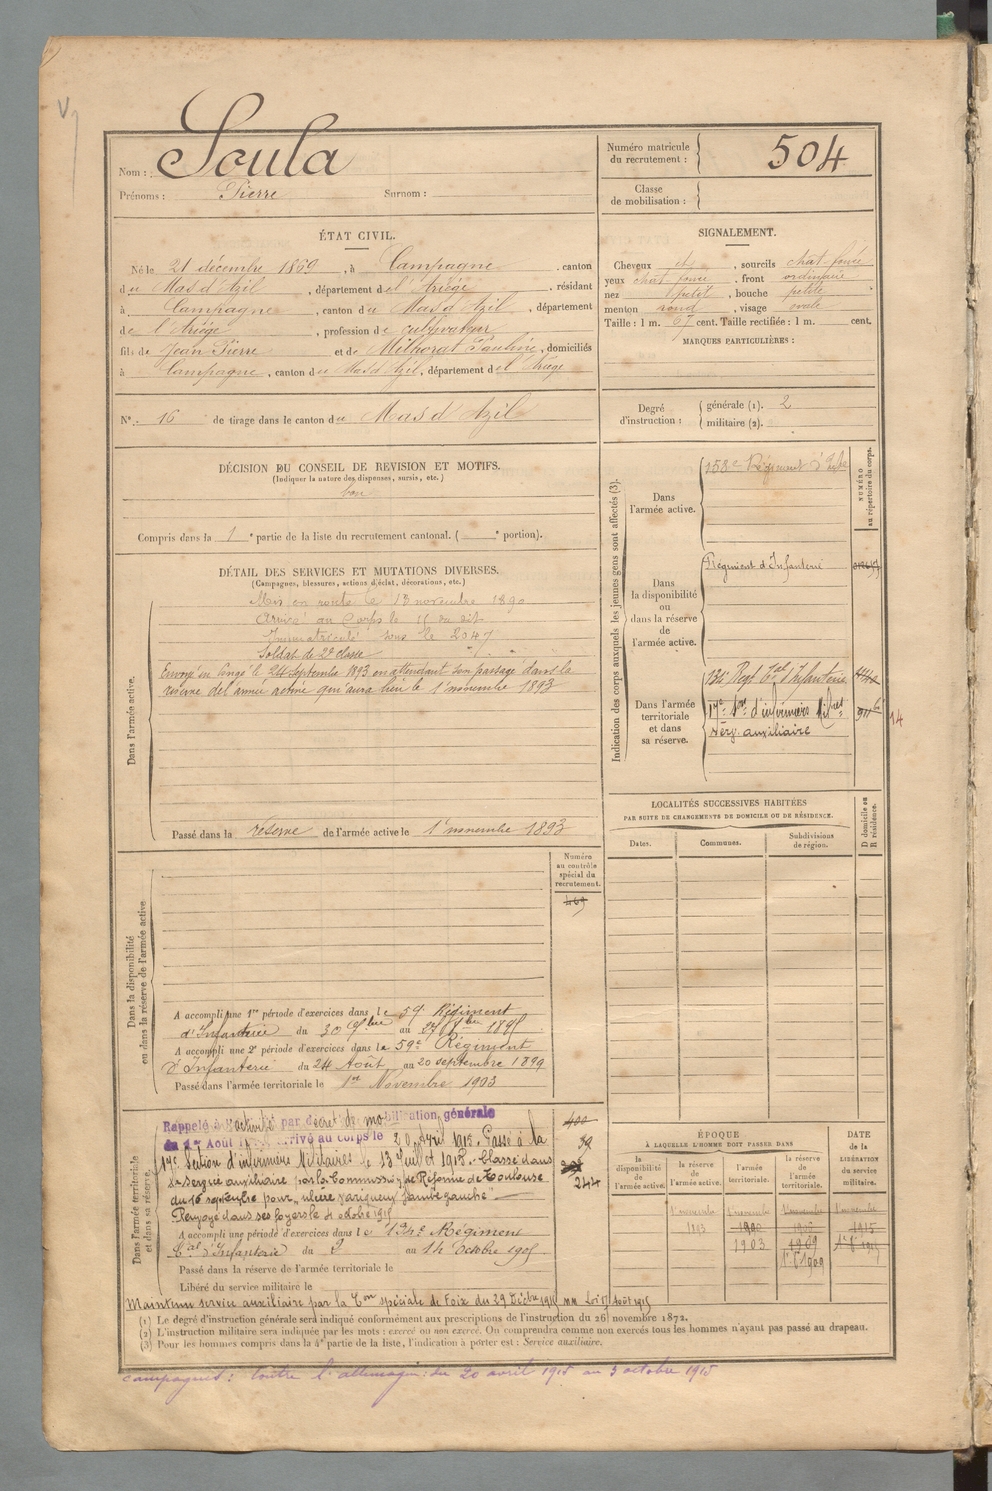 Soula
Nom :
Prénoms : Pierre Surnom :
Numéro matricule
du recrutement : 504
Classe
de mobilisation :
ÉTAT CIVIL.
Né le 21 décembre 1869, à Campagne, canton
du Mas d'Azil, département de l'Ariège, résidant
à Campagne, canton du Mas d'Azil, département
de l'Ariège, profession de cultivateur
fils de Jean Pierre et de Milhorat Pauline, domiciliés
à Campagne, canton du Mas d'Azil, département de l'Ariège
N° 16 de tirage dans le canton du Mas d'Azil
SIGNALEMENT.
Cheveux et, sourcils chât. foncé
yeux chât. foncé, front ordinaire
nez petit, bouche petite
menton rond, visage ovale
Taille : 1 m. 67 cent. Taille rectifiée : 1 m. cent.
MARQUES PARTICULIÈRES :
Degré
d'instruction :
générale (1). 2
militaire (2).
DÉCISION DU CONSEIL DE REVISION ET MOTIFS.
(Indiquer la nature des dispenses, sursis, etc.)
bon
Compris dans la 1e partie de la liste du recrutement cantonal. ( e portion).
DÉTAIL DES SERVICES ET MUTATIONS DIVERSES.
(Campagnes, blessures, actions d'éclat, décorations, etc.)
Dans l'armée active.
Mis en route le 13 novembre 1890
Arrivé au Corps le 15 du dit
Immatriculé sous le 2047
Soldat de 2e classe " . "
Envoyé en congé le 24 septembre 1893 en attendant son passage dans la
réserve de l'armée active qui aura lieu le 1er novembre 1893
Passé dans la réserve de l'armée active le 1er novembre 1893
Indication des corps auxquels les jeunes gens sont affectés (3).
NUMÉRO
au répertoire du corps.
Dans
l'armée active.
158e Régiment d'Infie
Dans
la disponibilité
ou
dans la réserve
de
l'armée active.
Régiment d'Infanterie
Dans l'armée
territoriale
et dans
sa réserve.
134e Regt Tal d'Infanterie
17e Son d'infirmiers Milres
Serv. auxiliaire
14
LOCALITÉS SUCCESSIVES HABITÉES
PAR SUITE DE CHANGEMENTS DE DOMICILE OU DE RÉSIDENCE.
Dates.
Communes.
Subdivisions
de région.
D domicile ou
R résidence.
Numéro
au contrôle
spécial du
recrutement.
469
Dans la disponibilité
ou dans la réserve de l'armée active
A accompli une 1re période d'exercices dans le 59e Régiment
d'Infanterie du 30 9bre au 27 Xbre 1896
A accompli une 2e période d'exercices dans le 59e Régiment
d'Infanterie du 24 Août au 20 septembre 1899
Passé dans l'armée territoriale le 1er Novembre 1903
Dans l'armée territoriale
et dans sa réserve.
Rappelé à l'activité par décret de mobilisation générale
du 1er Août arrivé au corps le 20 Avril 1915. Passé à la
17e Section d'infirmiers Militaires le 13 Juillet 1915. Classé dans
le service auxiliaire par la Commission de Réforme de Toulouse
du 16 septembre pour "ulcère variqueux jambe gauche"
Renvoyé dans ses foyers le 4 octobre 1915
400
39
244
A accompli une période d'exercices dans le 134e Régiment
Tal d'Infanterie du 2 au 14 Octobre 1905
Passé dans la réserve de l'armée territoriale le
Libéré du service militaire le
Maintenu service auxiliaire par la Con spéciale de Foix du 29 Décbre 1915 Loi 17 Août 1915
ÉPOQUE
À LAQUELLE L'HOMME DOIT PASSER DANS
la
disponibilité
de
l'armée active.
la réserve
de
l'armée active.
l'armée
territoriale.
la réserve
de
l'armée
territoriale.
DATE
de la
LIBÉRATION
du service
militaire.
1er novembre 1er novembre 1er novembre 1er novembre
1893 1900 1906 1915
1903 1909
(1) Le degré d'instruction générale sera indiqué conformément aux prescriptions de l'instruction du 26 novembre 1872.
(2) L'instruction militaire sera indiquée par les mots : exercé ou non exercé. On comprendra comme non exercés tous les hommes n'ayant pas passé au drapeau.
(3) Pour les hommes compris dans la 4e partie de la liste, l'indication à porter est : Service auxiliaire.
Campagnes : Contre l'allemagne : du 20 avril 1915 au 3 octobre 1915